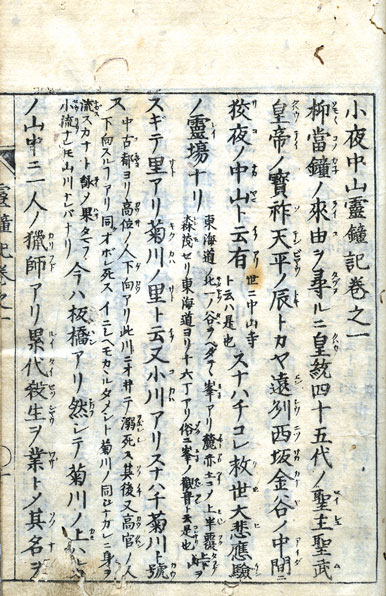 小夜中山靈鐘記巻之一
抑當鐘ノ來由ヲ尋ルニ皇統四十五代ノ聖主聖武
皇帝ノ寶祚天平ノ辰トカヤ遠列西坂金谷ノ中間ニ
狡夜ノ中山ト云有
世ニ中山寺
ト云ハ是也
スナハチコレ救世大悲應驗
ノ靈塲ナリ
東海道ノ北一ノ谷ヲヘダテ峯アリ
森茂セリ東海道ヨリ十六丁アリ俗ニ峯ノ觀音ト云是也
スギテ里アリ菊川ノ里ト云又小川アリスナハチ菊川ト號
ス
中古都ヨリ高位ノ人下向アリ此川ニオ井テ溺死ス其後又高官ノ人
下向スルアリ同
菊川ノ同
流
小流ナレトモ山川ナレバナリ
今ハ板橋アリ然シテ菊川ノ上ハ
ノ山中ニ一人ノ獵師アリ累代殺生ヲ業トノ其名ヲ
靈鐘記巻之一